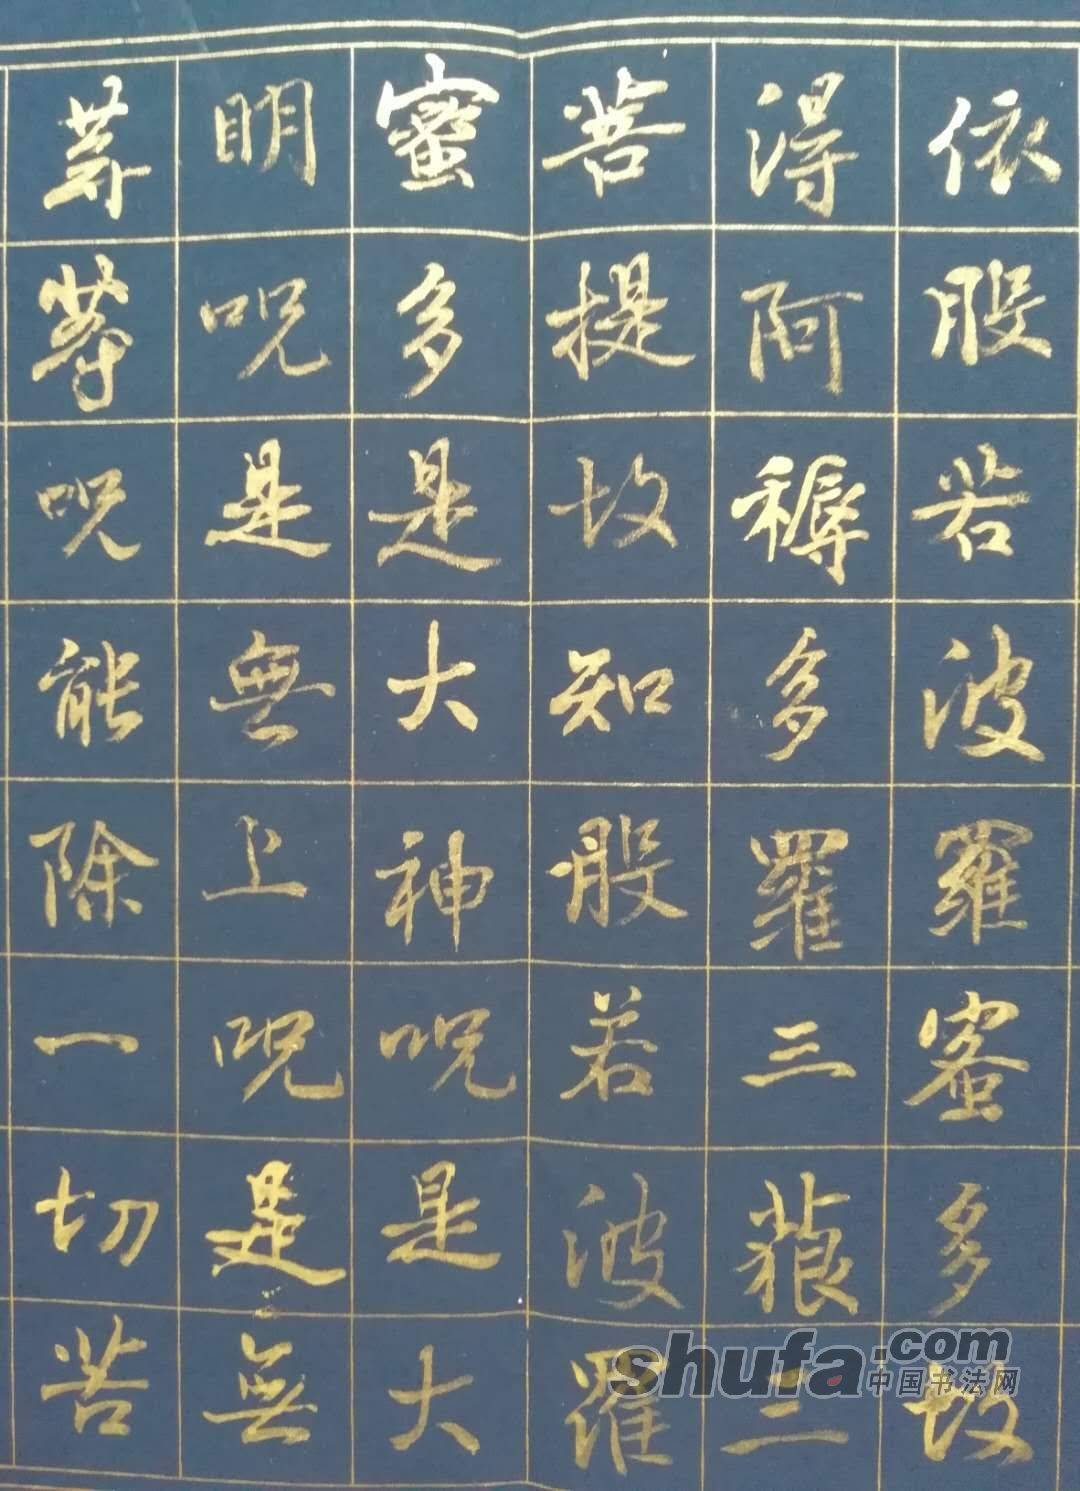 依般若波羅蜜多故
得阿耨多羅三藐三
菩提故知般若波羅
蜜多是大神咒是大
明咒是無上咒是無
等等咒能除一切苦
shufa.com
中国书法网